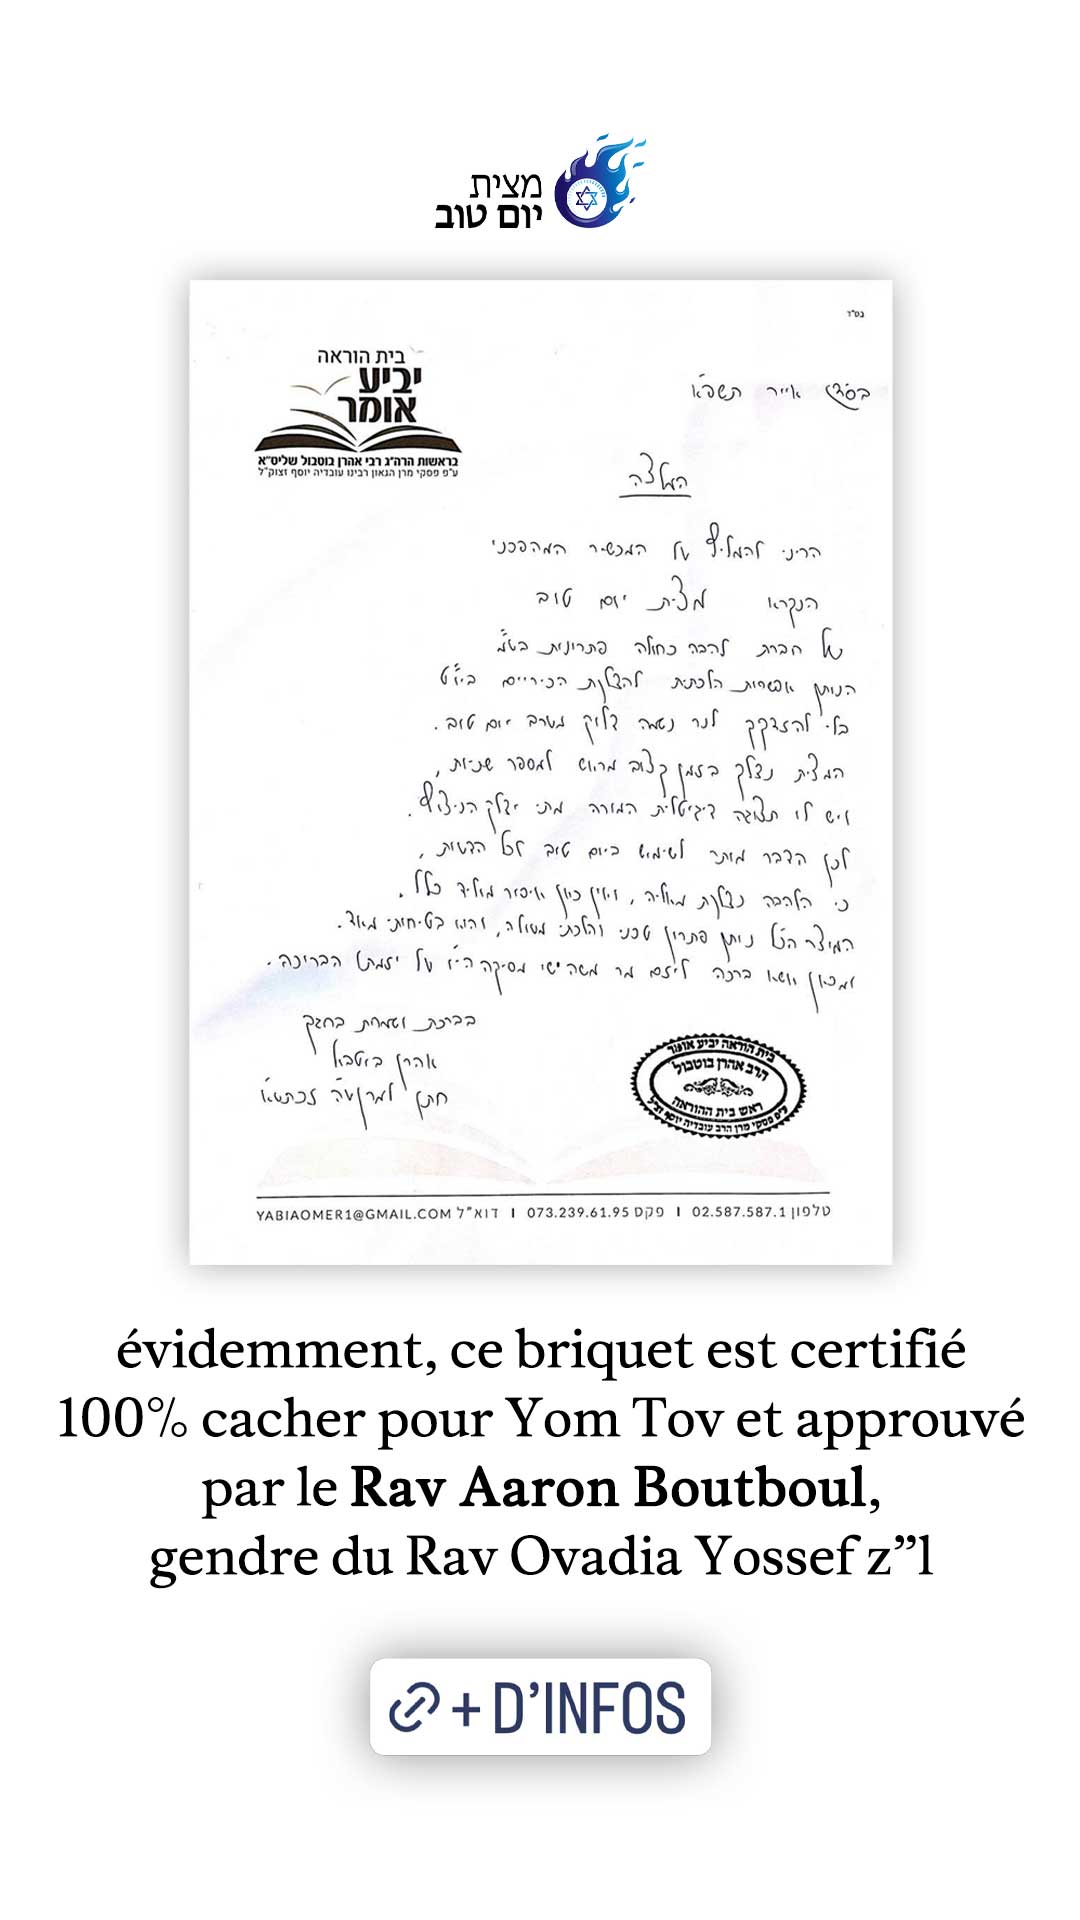 מצית
יום טוב
בס"ד
בית הוראה
יביע
אומר
בראשות הרה"ג רבי אהרן בוטבול שליט"א
ע"פ פסקי מרן הגאון רבינו עובדיה יוסף זצוק"ל
בס"ד אייר תשפ"א
המלצה
הריני להמליץ על המכשיר המהפכני
הנקרא מצית יום טוב
של חברת להבה כחולה פתרונות בע"מ
הנותן אפשרות הלכתית להדלקת הכיריים ביו"ט
בלי להזדקק לנר נשמה דלוק מערב יום טוב.
המצית נדלק בזמן קצוב מראש למספר שניות,
ויש לו תצוגה דיגיטלית המורה מתי ידלק הניצוץ.
לכן הדבר מותר לשימוש ביום טוב לכל הדעות,
כי הלהבה נדלקת מאליה, ואין כאן איסור מוליד כלל.
המוצר הנ"ל נותן פתרון טכני והלכתי מעולה, והוא בטיחותי מאד.
ומכאן אשא ברכה ליזם מר משה ישי מסיקה הי"ו על יוזמתו הברוכה.
בברכת ושמחת בחגך
אהרן בוטבול
חתן למרן
בית הוראה יביע אומר
הרב אהרן בוטבול
ראש בית ההוראה
ע"פ פסקי מרן הרב עובדיה יוסף זצ"ל
טלפון 02.587.587.1 | פקס 073.239.61.95 | דוא"ל YABIAOMER1@GMAIL.COM
évidemment, ce briquet est certifié
100% cacher pour Yom Tov et approuvé
par le Rav Aaron Boutboul,
gendre du Rav Ovadia Yossef z”l
+ D’INFOS